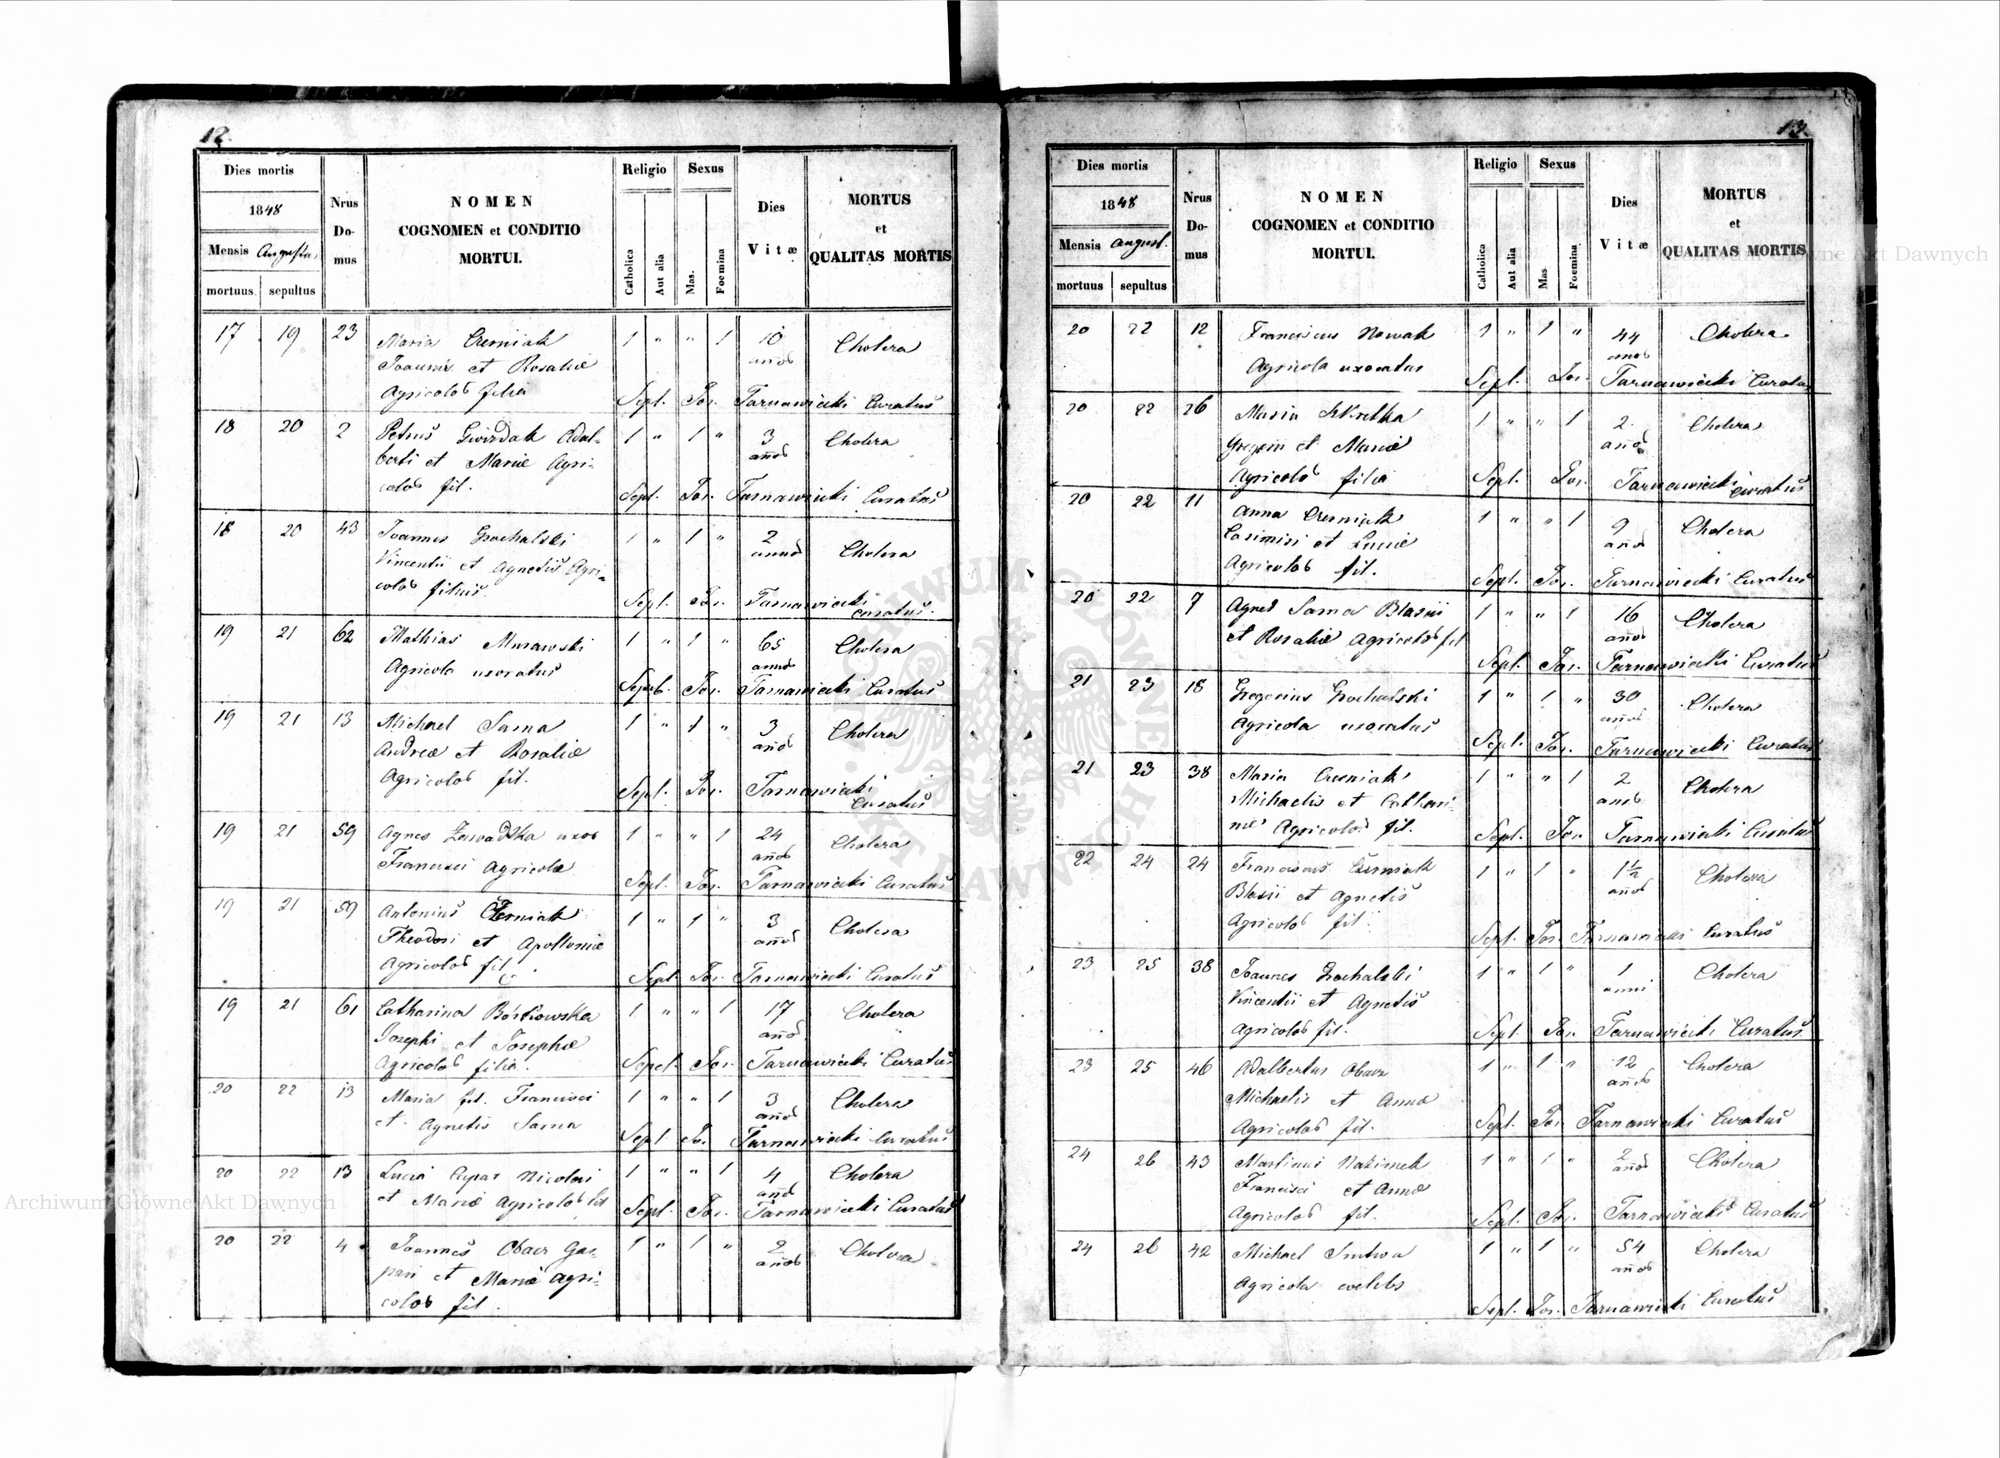 12.
Dies mortis
1848
Mensis Augusta
mortuus sepultus
Nrus
Do-
mus
NOMEN
COGNOMEN et CONDITIO
MORTUI.
Religio
Catholica
Aut alia
Sexus
Mas.
Foemina
Dies
Vitæ
MORTUS
et
QUALITAS MORTIS
17 19 23 Maria Czerniak 1 " " 1 10 Cholera
Joannis et Rosaliæ annos
Agricolos filia Sept. Jos. Tarnawiecki Curatus
18 20 2 Petrus Gwizdak Adal- 1 " 1 " 3 Cholera
berti et Mariæ Agri- años
colos fil. Sept. Jos. Tarnawiecki Curatus
18 20 43 Joannes Grochalski 1 " 1 " 2 Cholera
Vincentii et Agnetis Agri- annos
colos filius. Sept. Jos. Tarnawiecki
Curatus.
19 21 62 Mathias Murawski 1 " 1 " 65 Cholera
Agricola uxoratus annos
Sept. Jos. Tarnawiecki Curatus
19 21 13 Michael Sama 1 " 1 " 3 Cholera
Andreæ et Rosaliæ años
Agricolos fil. Sept. Jos. Tarnawiecki
Curatus
19 21 59 Agnes Zawadzka uxor 1 " " 1 24 Cholera
Francisci Agricolæ años
Sept. Jos. Tarnawiecki Curatus
19 21 59 Antonius Czerniak 1 " 1 " 3 Cholera
Theodori et Apolloniæ años
Agricolos fil. Sept. Jos. Tarnawiecki Curatus
19 21 61 Catharina Borkowska 1 " " 1 17 Cholera
Josephi et Josephæ años
Agricolos filia. Sept. Jos. Tarnawiecki Curatus
20 22 13 Maria fil. Francisci 1 " " 1 3 Cholera
et Agnetis Sama años
Sept Jos. Tarnawiecki Curatus
20 22 13 Lucia Nicolai 1 " " 1 4 Cholera
et Mariæ Agricolos fil años
Sept. Jos. Tarnawiecki Curatus
20 22 4 Joannes Obacz Gas- 1 " 1 " 2 Cholera
pari et Mariæ Agri- años
colos fil.
13.
Dies mortis
1848
Mensis August.
mortuus sepultus
Nrus
Do-
mus
NOMEN
COGNOMEN et CONDITIO
MORTUI.
Religio
Catholica
Aut alia
Sexus
Mas
Foemina
Dies
Vitæ
MORTUS
et
QUALITAS MORTIS
20 22 12 Franciscus Nowak 1 " 1 " 44 Cholera
Agricola uxoratus annos
Sept. Jos. Tarnawiecki Curatus
20 22 26 Maria 1 " " 1 2 Cholera
Gregorii et Mariæ años
Agricolos filia Sept. Jos. Tarnawiecki
Curatus
20 22 11 Anna Czerniak 1 " " 1 9 Cholera
Casimiri et Luciæ años
Agricolos fil. Sept. Jos. Tarnawiecki Curatus
20 22 7 Agnes Sama Blasii 1 " " 1 16 Cholera
et Rosaliæ Agricolos fil años
Sept. Jos. Tarnawiecki Curatus
21 23 18 Gregorius Grochalski 1 " 1 " 30 Cholera
Agricola uxoratus años
Sept. Jos. Tarnawiecki Curatus
21 23 38 Maria Czerniak 1 " " 1 2 Cholera
Michaelis et Cathari- annos
næ Agricolos fil. Sept. Jos. Tarnawiecki Curatus
22 24 24 Franciscus Czerniak 1 " 1 " 1½ Cholera
Blasii et Agnetis años
Agricolos fil. Sept. Jos. Tarnawiecki Curatus
23 25 38 Joannes Grochalski 1 " 1 " 1 Cholera
Vincentii et Agnetis anni
Agricolos fil. Sept Jos. Tarnawiecki Curatus
23 25 46 Adalbertus Obacz 1 " 1 " 12 Cholera
Michaelis et Annæ años
Agricolos fil. Sept. Jos. Tarnawiecki Curatus
24 26 43 Martinus 1 " 1 " 2 Cholera
Francisci et Annæ años
Agricolos fil. Sept. Jos. Tarnawiecki Curatus
24 26 42 Michael 1 " 1 " 54 Cholera
Agricola cælebs años
Sept. Jos. Tarnawiecki Curatus
Archiwum Główne Akt Dawnych
Archiwum Główne Akt Dawnych
ARCHIWUM GŁÓWNE AKT DAWNYCH